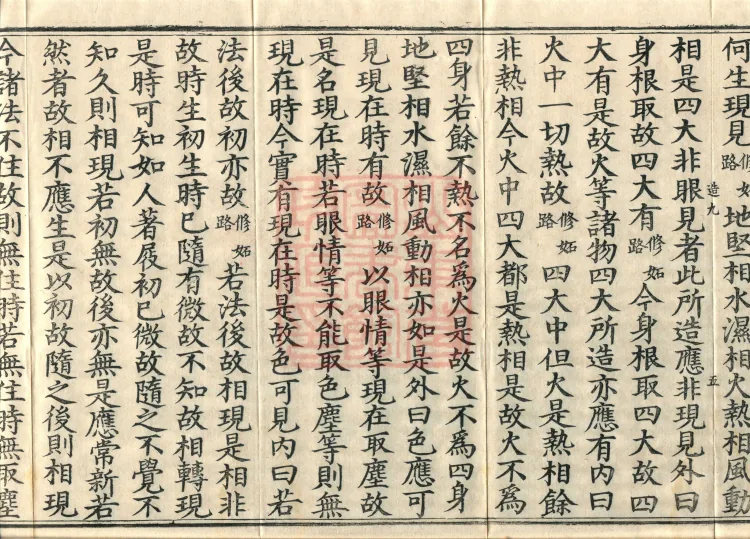 何生現見修妬路地堅相水濕相火熱相風動
造九 五
相是四大非眼見者此所造應非現見外曰
身根取故四大有修妬路今身根取四大故四
大有是故火等諸物四大所造亦應有內曰
火中一切熱故修妬路四大中但火是熱相餘
非熱相今火中四大都是熱相是故火不爲
四身若餘不熱不名爲火是故火不爲四身
地堅相水濕相風動相亦如是外曰色應可
見現在時有故修妬路以眼情等現在取塵故
是名現在時若眼情等不能取色塵等則無
現在時今實有現在時是故色可見內曰若
法後故初亦故修妬路若法後故相現是相非
故時生初生時已隨有微故不知故相轉現
是時可知如人著屐初已微故隨之不覺不
知久則相現若初無故後亦無是應常新若
然者故相不應生是以初故隨之後則相現
今諸法不住故則無住時若無住時無取塵